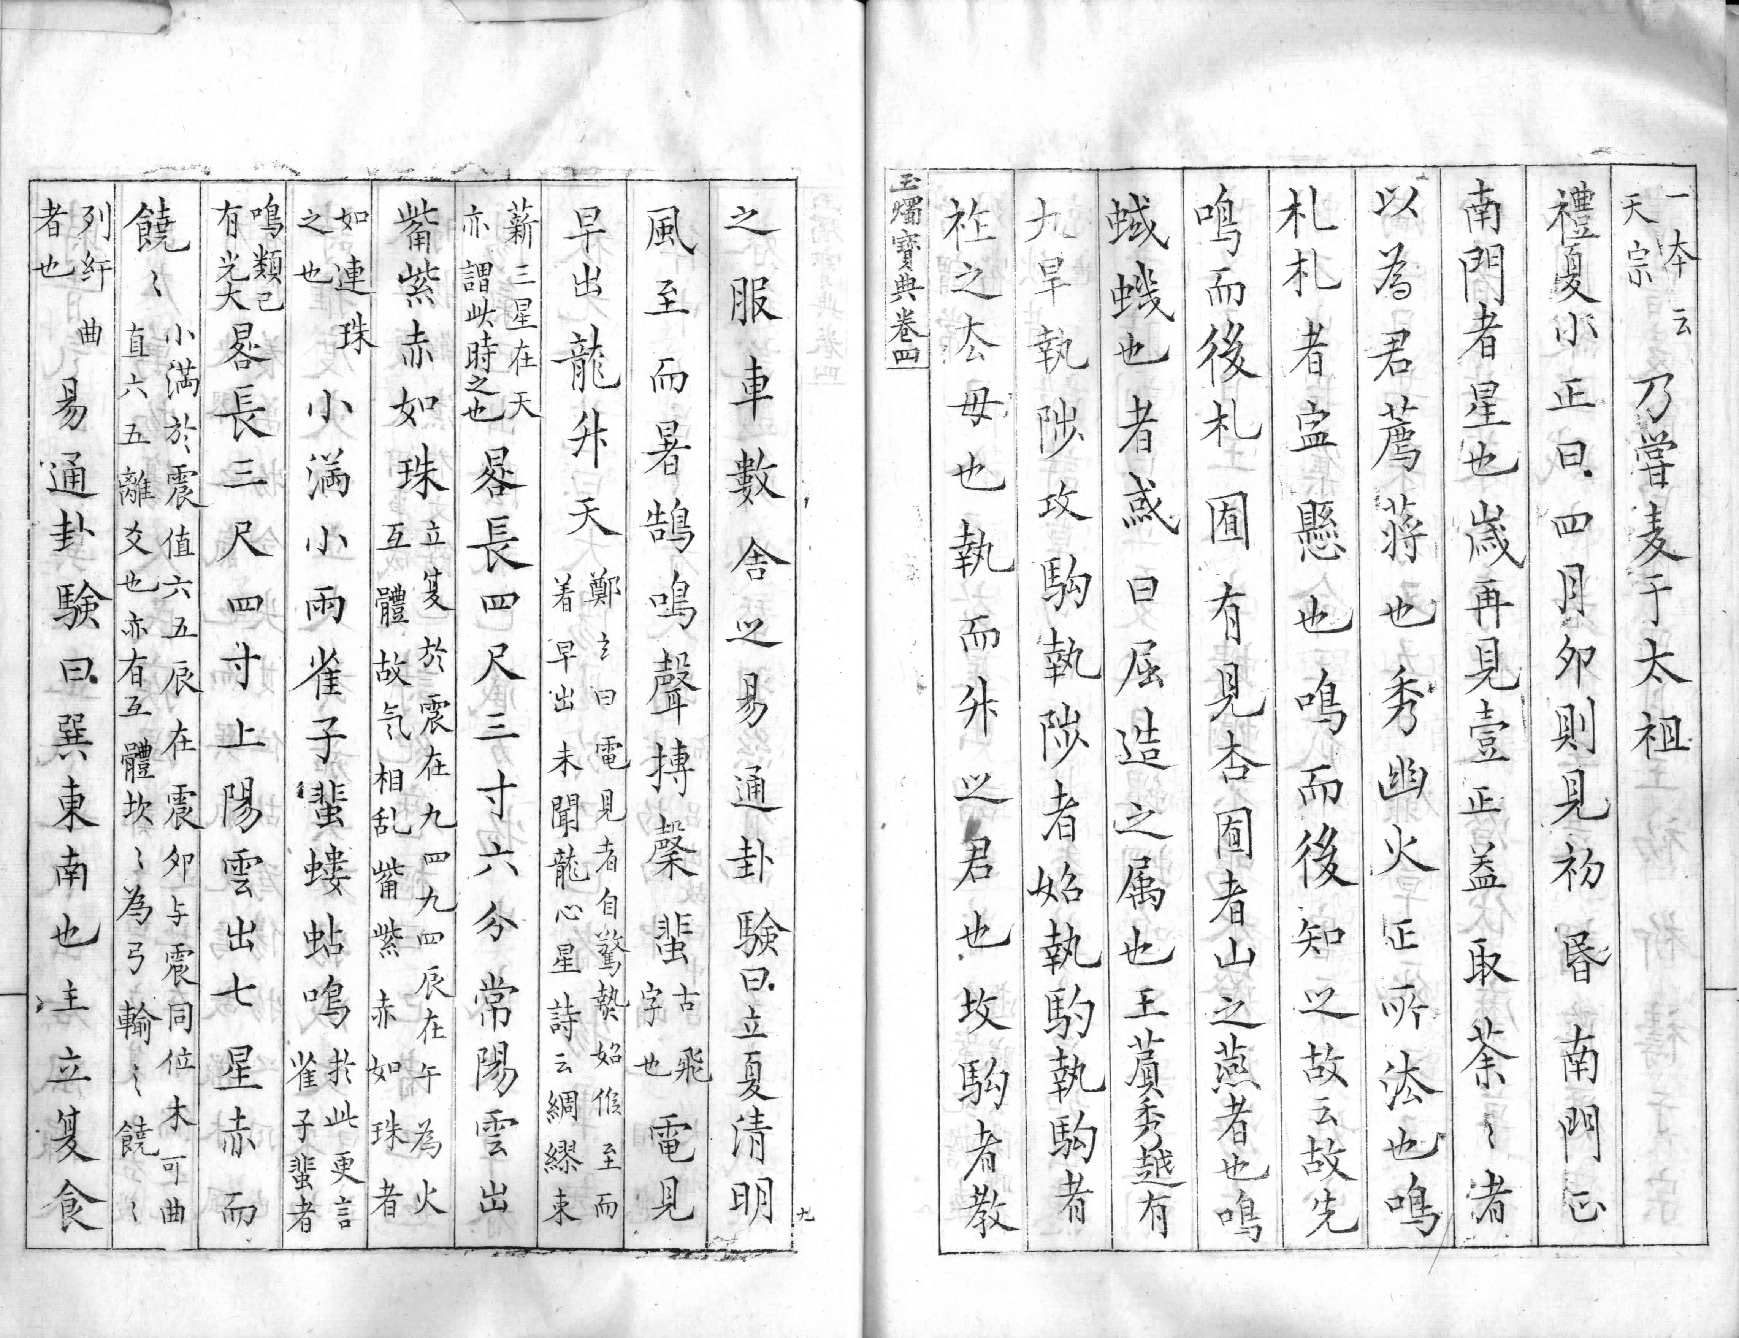 一本云天宗乃嘗麦于太祖
禮夏小正曰四月卯則見初昏南門正
南門者星也歳再見壹正益取荼〻者
以為君薦蔣也秀幽火正所法也鳴
札札者寍懸也鳴而後知之故云故先
鳴而後札囿有見杏囿者山之燕者也鳴
蜮蟣也者或曰屈造之属也王萯秀越有
九旱執陟攻駒執陟者始執駒執駒者
祚之厺母也執而升之君也攻駒者教
玉燭寳典卷四
之服車數舎之易通卦験曰立夏清明
風至而暑鵠鳴聲搏糳蜚古飛字也電見
早出龍升天鄭玄曰電見者自驚蟄始候至而
着早出未聞龍心星詩云綢繆束
薪三星在天
亦謂此時之也晷長四尺三寸六分常陽雲出
觜紫赤如珠立夏於震在九四九四辰在午為火
互體故気相乱觜紫赤如珠者
如連珠
之也小満小雨雀子蜚螻蛄鳴於此更言
雀子蜚者
鳴類已
有光大晷長三尺四寸上陽雲出七星赤而
饒〻小満於震值六五辰在震卯与震同位木可曲
直六五離爻也亦有互體坎〻為弓輪〻饒〻
列紆曲
者也易通卦験曰巽東南也主立夏食
九